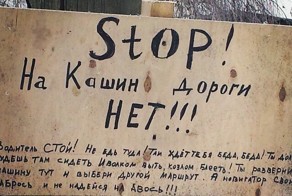 STOP!
На Кашин Дороги
НЕТ!!!
Водитель СТОЙ! Не едь туда! Там ждёт тебя беда, беда! Ты до
будешь там сидеть И волком выть, козлом блеять! Ты разверни
машину тут и выбери другой маршрут. А навигатор свой
забрось и не надейся на Авось!!!